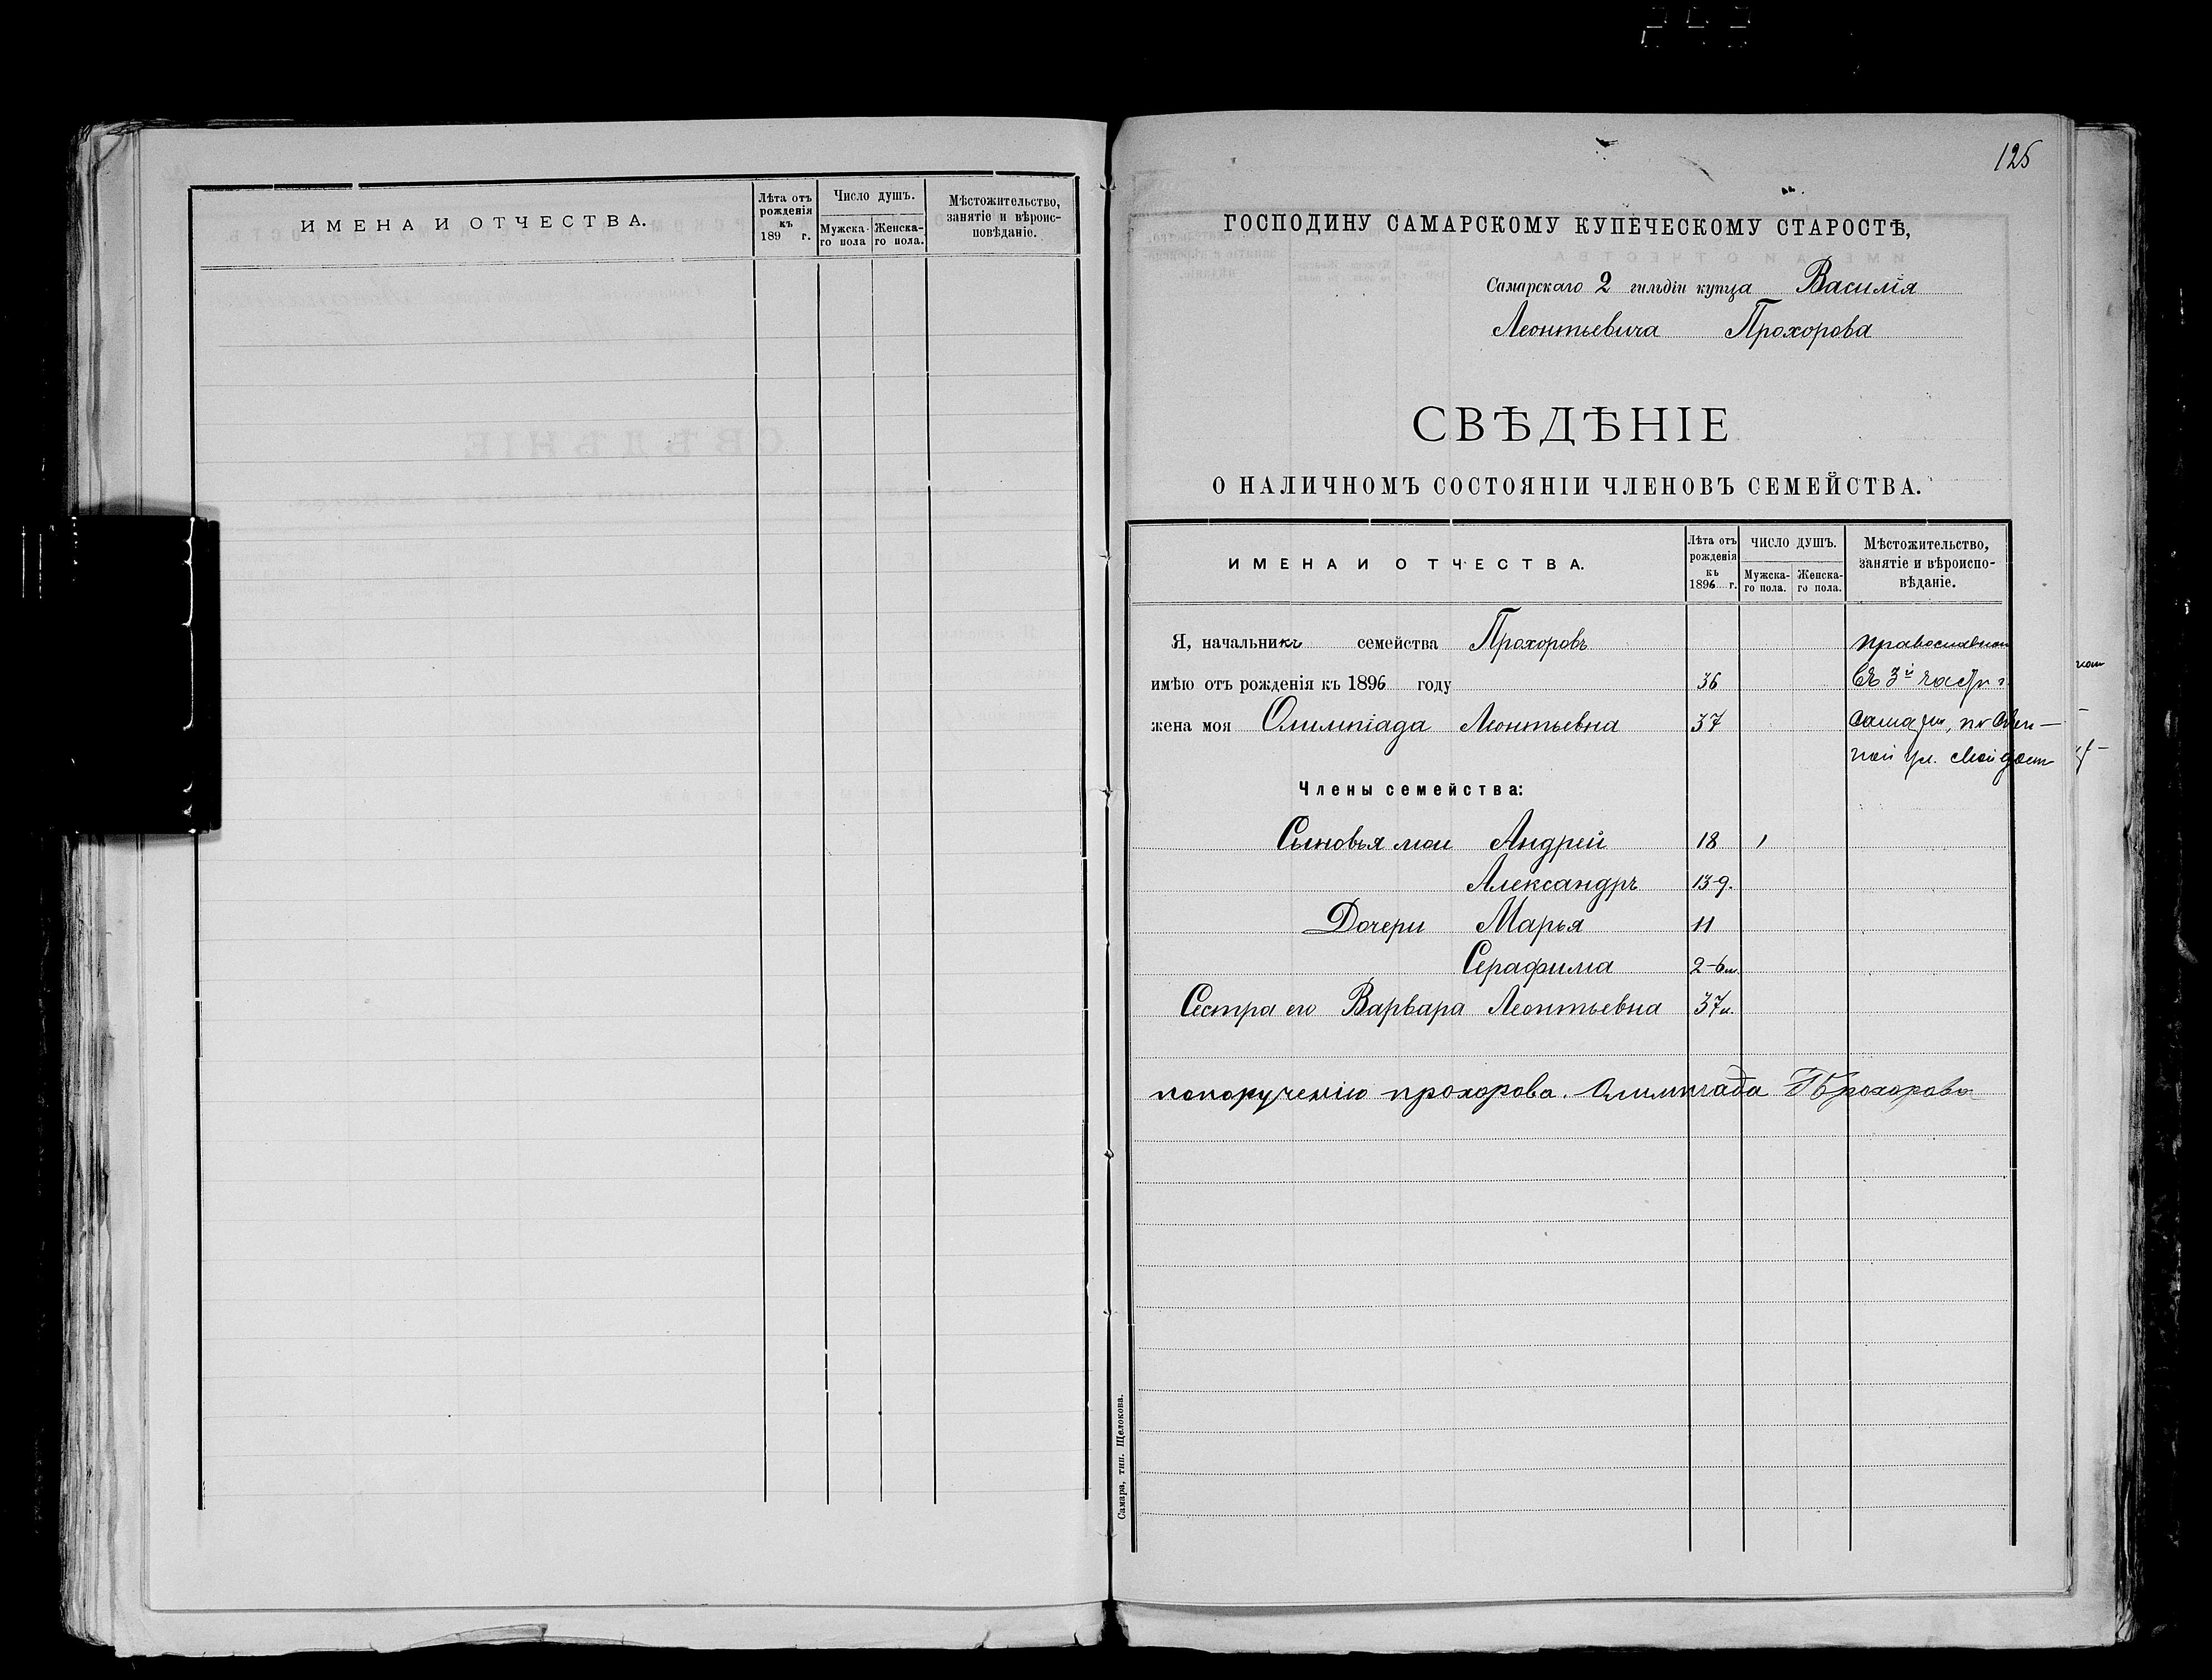 ИМЕНА И ОТЧЕСТВА.
Лѣта отъ рожденія къ 189 г.
Число душъ.
Мужска-го пола
Женска-го пола.
Мѣстожительство, занятіе и вѣроис-повѣданіе.
125
ГОСПОДИНУ САМАРСКОМУ КУПЕЧЕСКОМУ СТАРОСТѢ,
Самарскаго 2 гильдіи купца Василія
Леонтьевича Прохорова
СВѢДѢНІЕ
О НАЛИЧНОМЪ СОСТОЯНІИ ЧЛЕНОВЪ СЕМЕЙСТВА.
ИМЕНА И ОТЧЕСТВА.
Лѣта отъ рожденія къ 1896 г.
ЧИСЛО ДУШЪ.
Мужска-го пола.
Женска-го пола.
Мѣстожительство, занятіе и вѣроиспо-вѣданіе.
Я, начальникъ семейства Прохоровъ
имѣю отъ рожденія къ 1896 году 36 3й части
жена моя Олимпіада Леонтьевна 37
ной ул. свой домъ
Члены семейства:
Сыновья мои Андрей 18 1
Александръ 13-9.
Дочери Марья 11
Серафима 2-6м.
Сестра его Варвара Леонтьевна 37
попорученію прохорова. Олимпиада Прохорова
Самара, тип. Щелокова.